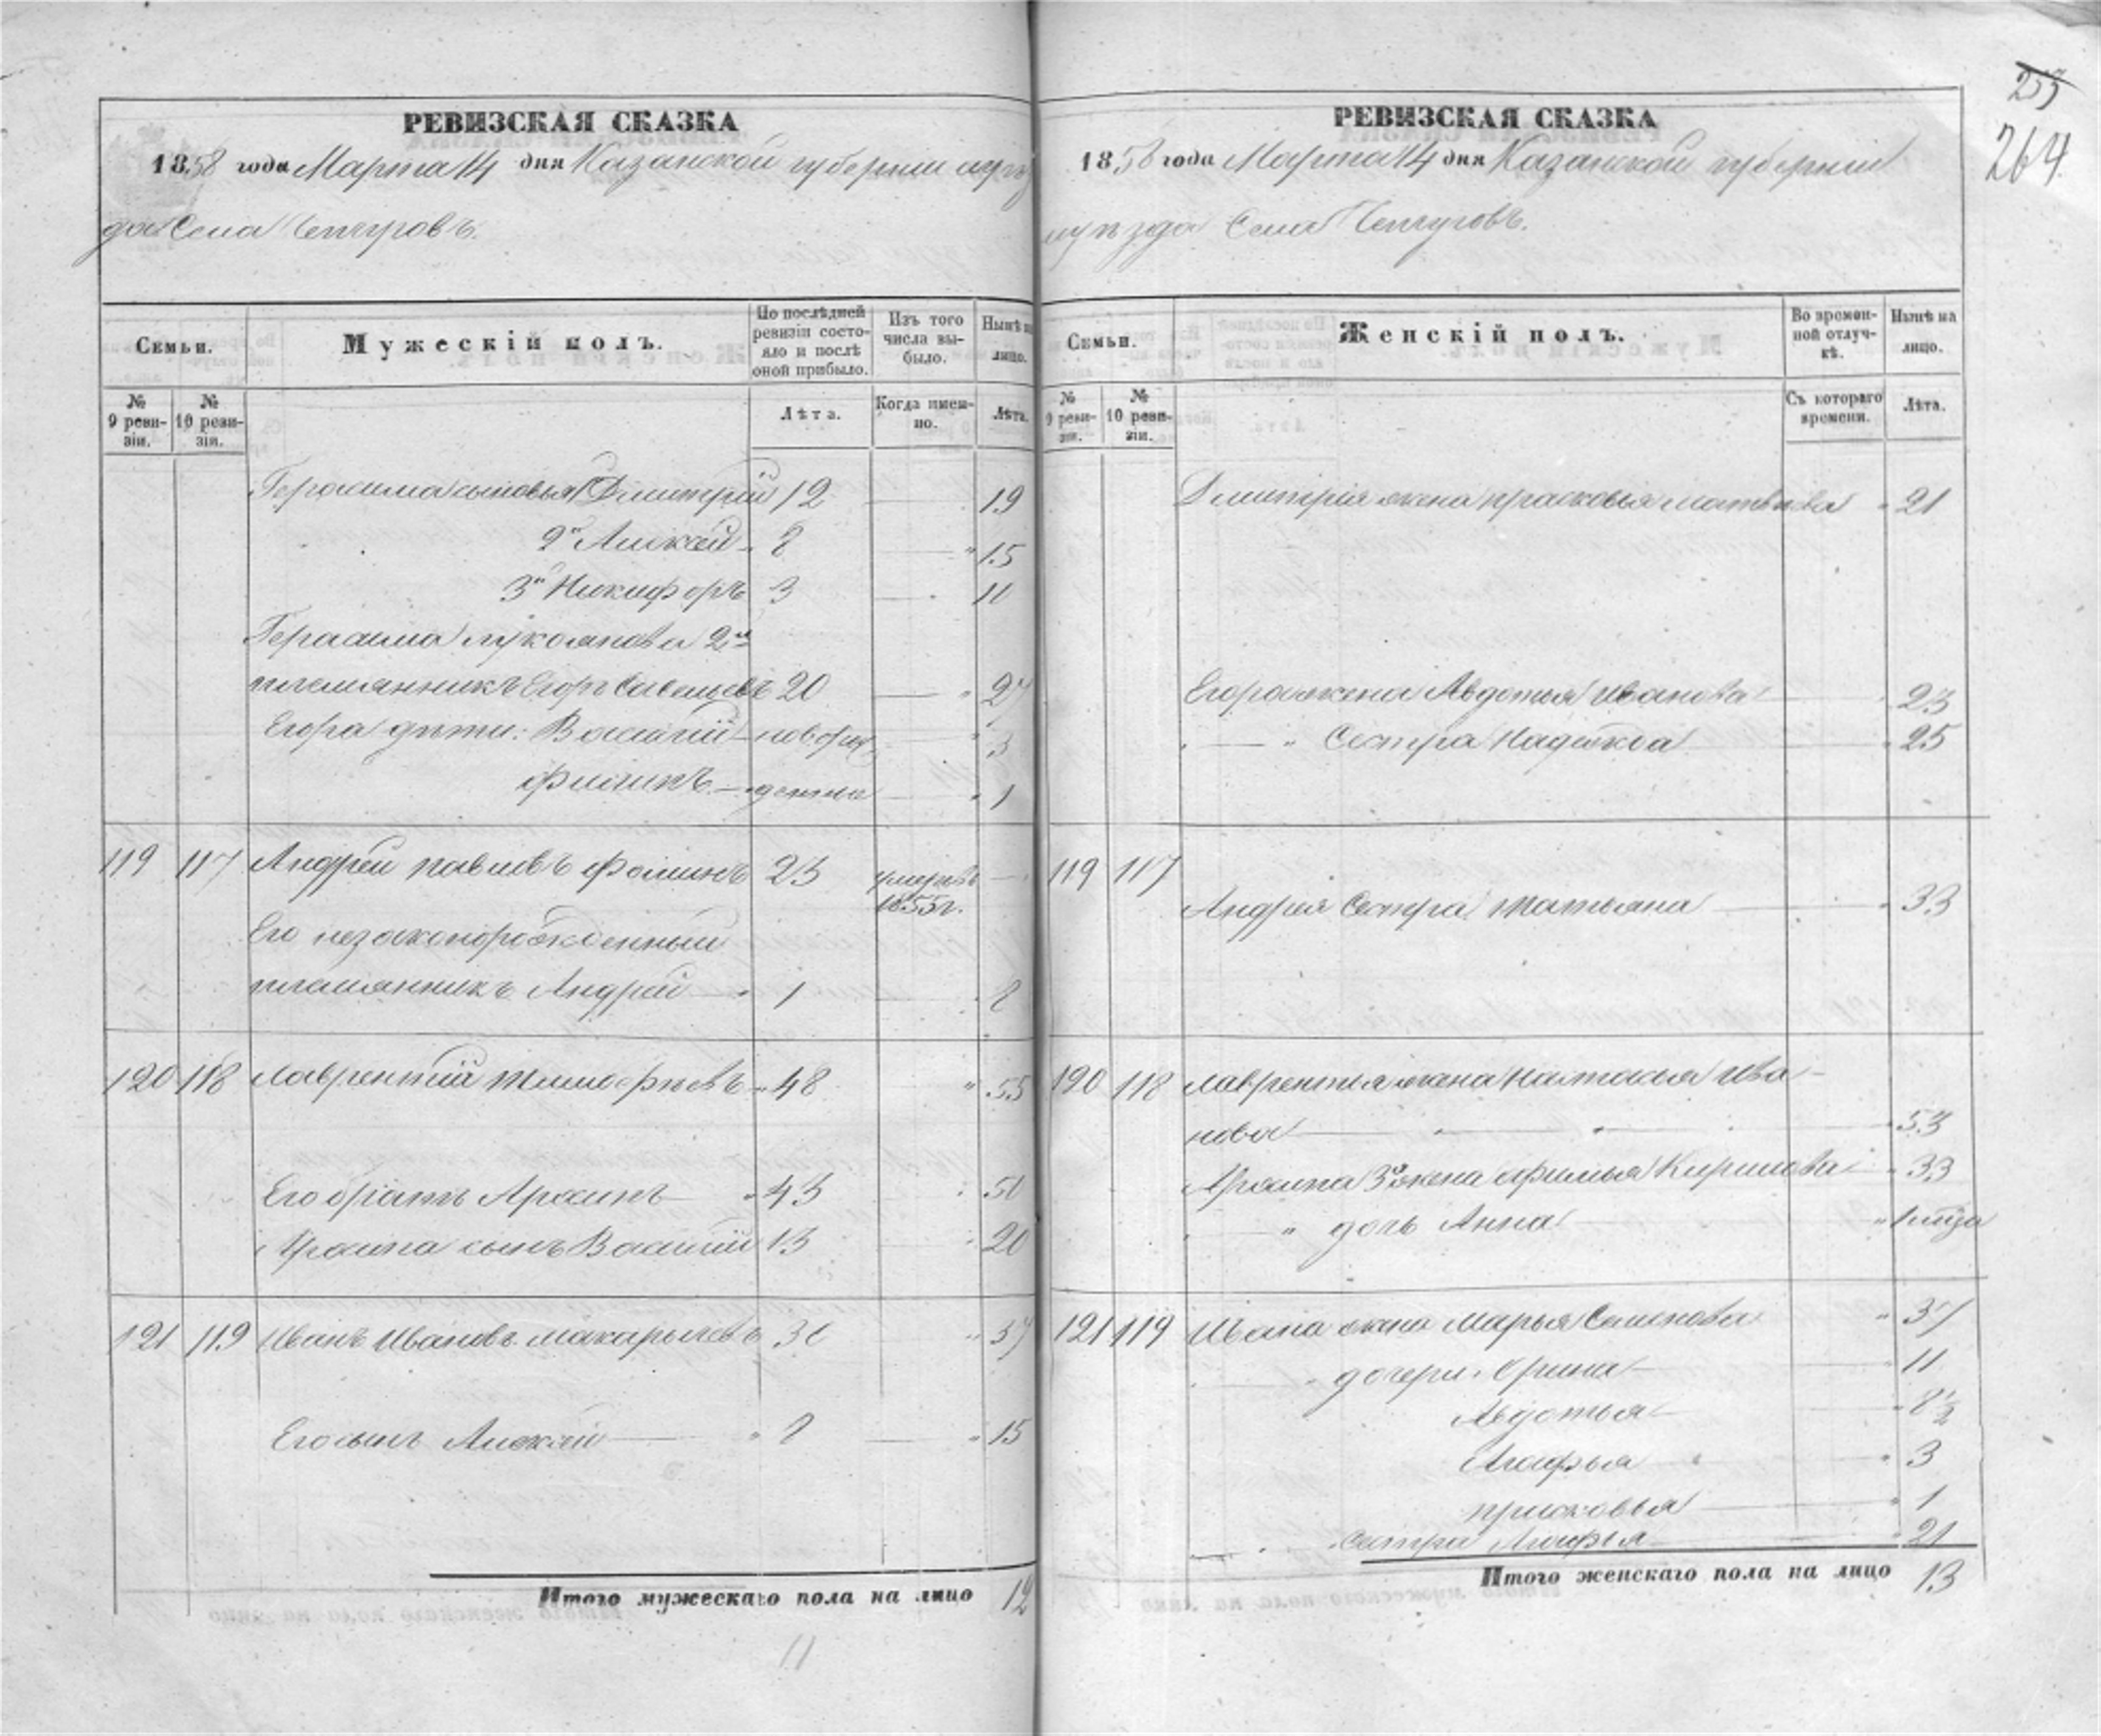 РЕВИЗСКАЯ СКАЗКА
1858 года Марта 14 дня Казанской губерніи уѣз
да Села
Семьи.
Мужескій полъ.
По послѣдней ревизіи состояло и послѣ оной прибыло.
Изъ того числа выбыло.
Нынѣ на лицо.
№ 9 ревизіи.
№ 10 ревизіи.
Лѣта.
Когда именно.
Лѣта.
Герасима сыновья Дмитрій 12 19
2й Алексѣй 8 15
3й Никифоръ 3 10
Герасима Лукоянова 2й
племянникъ Егоръ Савельевъ 20 27
Егора дѣти: Василій новорож 3
Филипъ денные 1
119 117 Андрей Павловъ Фоминъ 23 умеръ въ
1855 г.
Его незаконорожденный
племянникъ Андрей 1 8
120 118 Лаврентій Тимофѣевъ 48 55
Его братъ Архипъ 43 50
Архипа сынъ Василій 13 20
121 119 Иванъ Ивановъ Макарычевъ 30 37
Его сынъ Алексѣй 8 15
Итого мужескаго пола на лицо 12
11
253
264
РЕВИЗСКАЯ СКАЗКА
1858 года Марта 14 дня Казанской губерніи
уѣзда Села
Семьи.
Женскій полъ.
Во временной отлучкѣ.
Нынѣ на лицо.
№ 9 ревизіи.
№ 10 ревизіи.
Съ котораго времени.
Лѣта.
Дмитрія жена Прасковья Матвѣева 21
Егора жена Авдотья Иванова 23
" Сестра Надежда 25
119 117
Андрея Сестра Татьяна 33
120 118 Лаврентія жена Настасья Ива
нова 53
Архипа 3я жена Афимья Кирилова 33
" дочь Анна
121 119 Ивана жена Марья Семенова 37
дочери: Орина 11
Авдотья 8½
Агафья 3
Прасковья 1
Сестра Агафья 21
Итого женскаго пола на лицо 13